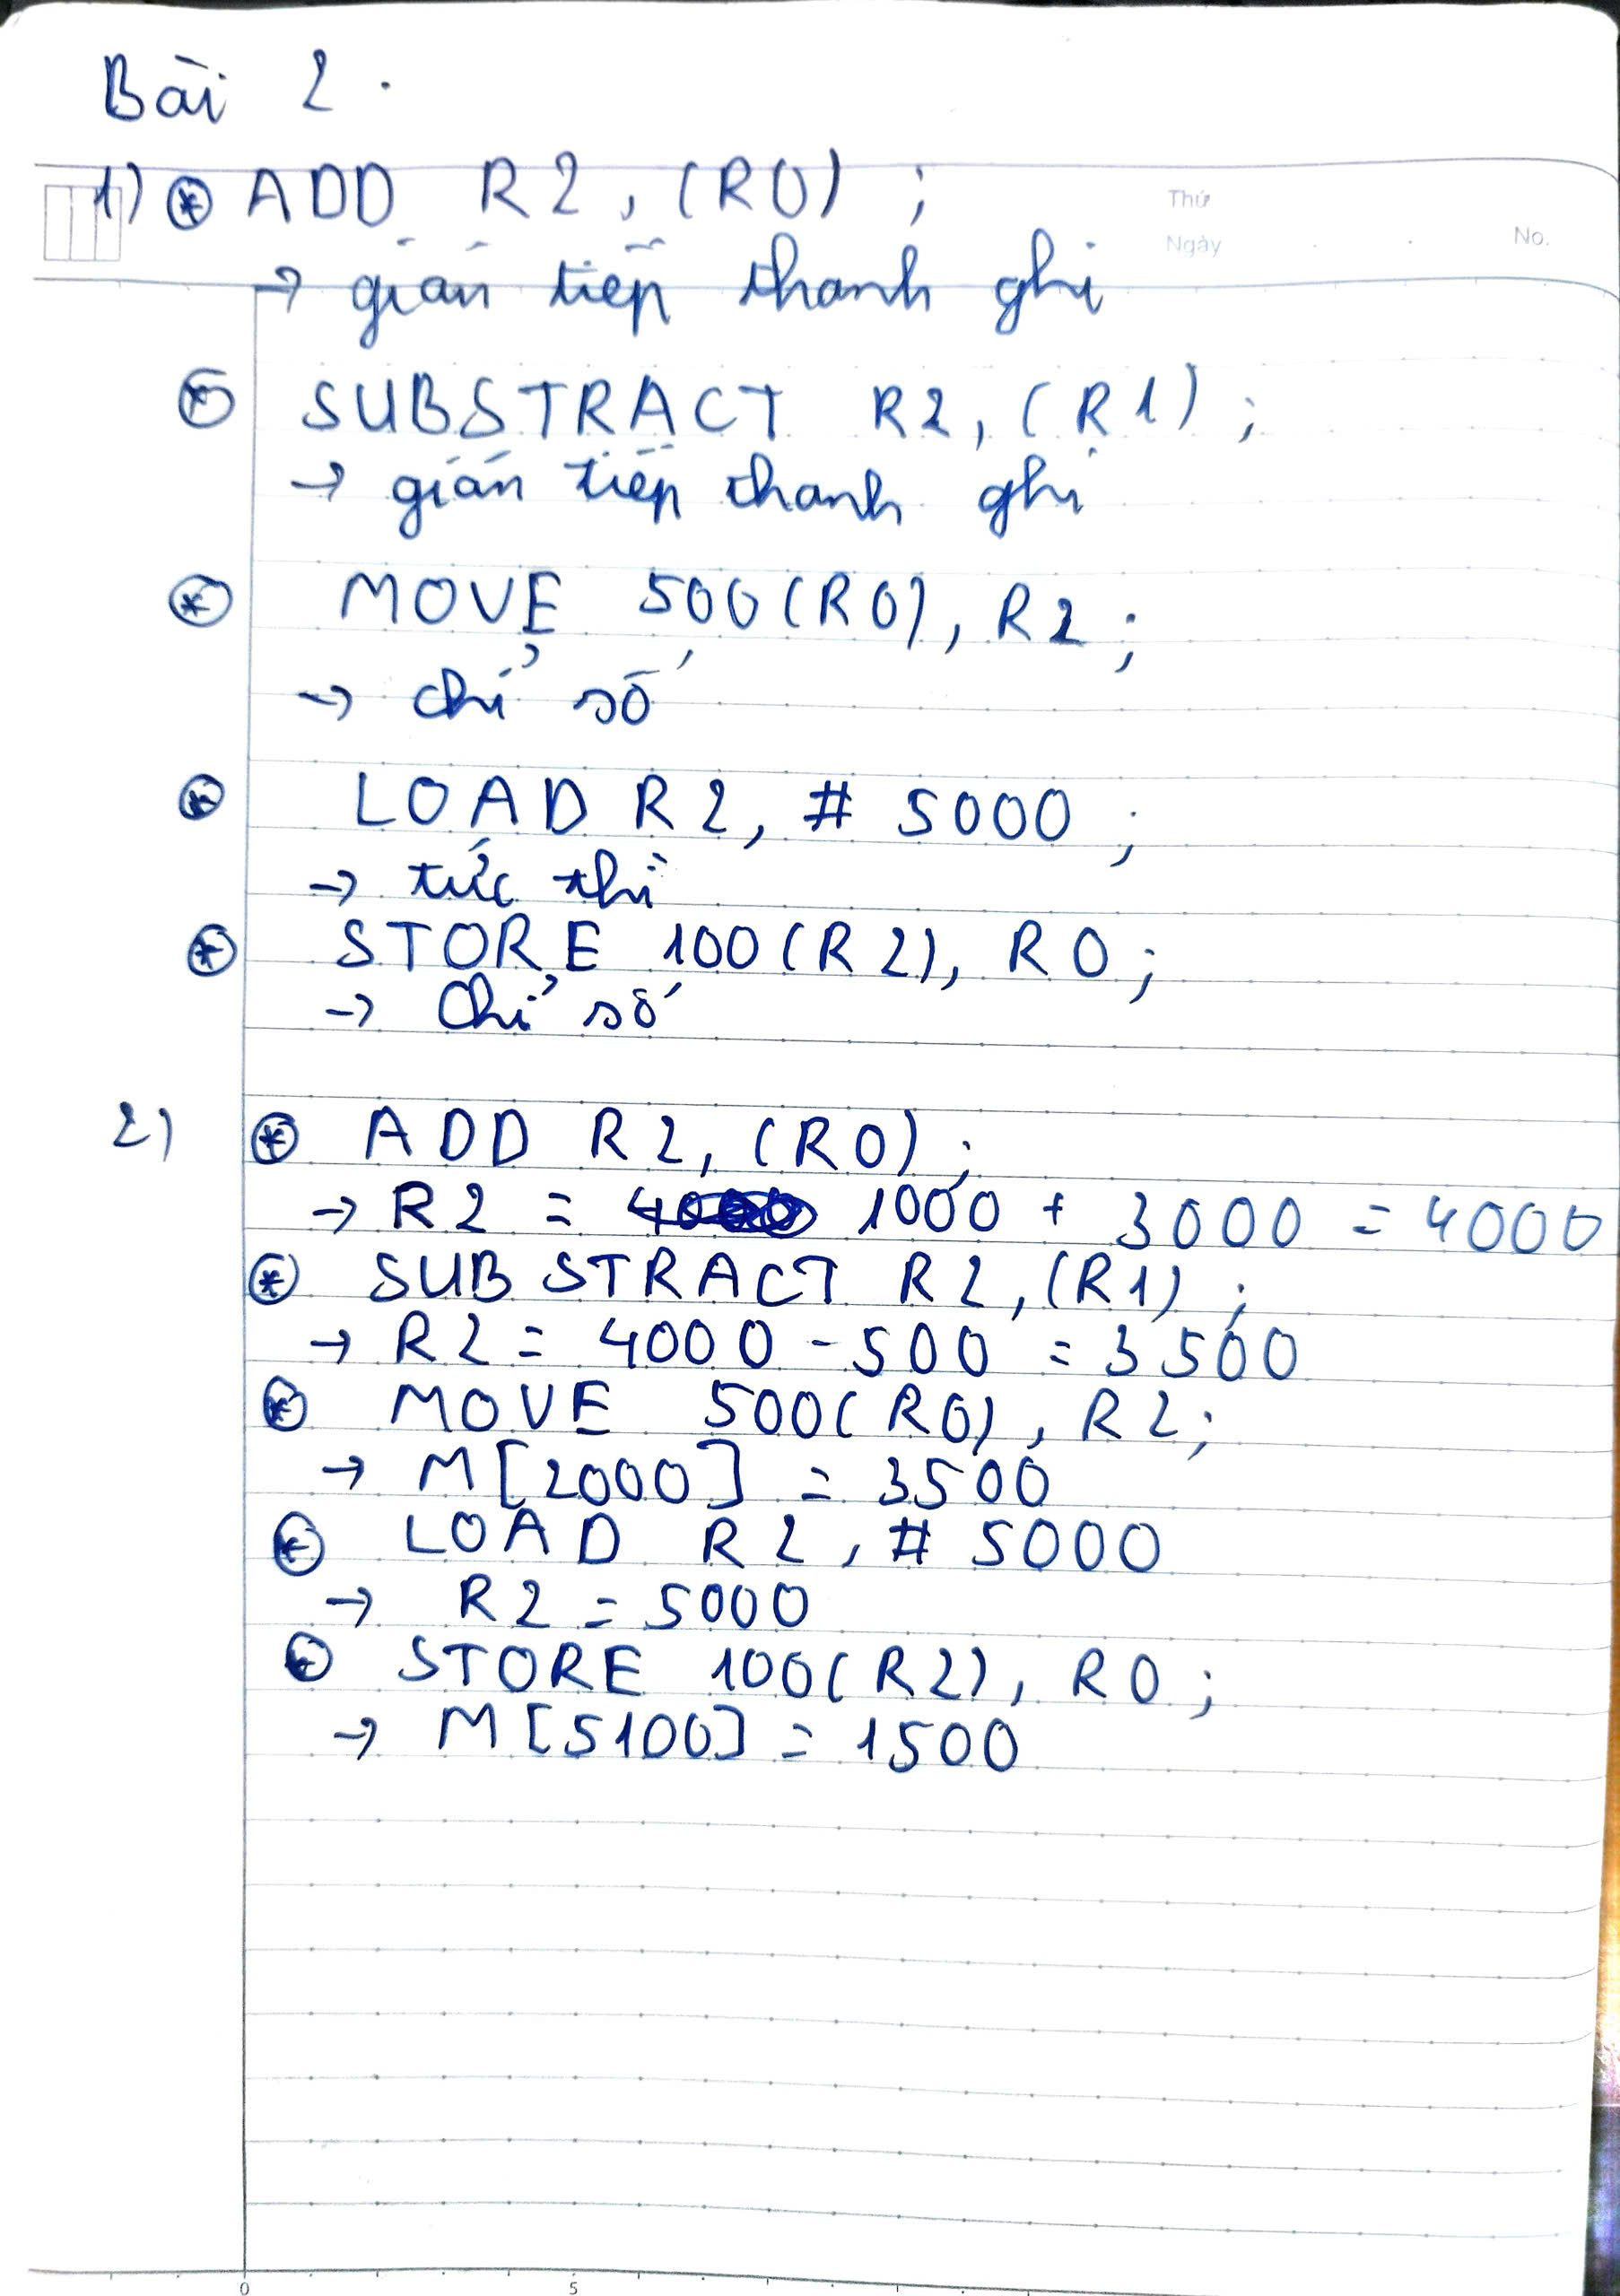 Bài 2.
1) ⊛ ADD R2, (R0) ;
Thứ
Ngày . . No.
→ gián tiếp thanh ghi
⊛ SUBSTRACT R2, (R1) ;
→ gián tiếp thanh ghi
⊛ MOVE 500(R0), R2 ;
→ chỉ số
⊛ LOAD R2, # 5000 ;
→ tức thì
⊛ STORE 100(R2), R0 ;
→ Chỉ số
2) ⊛ ADD R2, (R0) ;
→ R2 = 1000 + 3000 = 4000
⊛ SUBSTRACT R2, (R1) ;
→ R2 = 4000 - 500 = 3500
⊛ MOVE 500(R0), R2 ;
→ M[2000] = 3500
⊛ LOAD R2, # 5000
→ R2 = 5000
⊛ STORE 100(R2), R0 ;
→ M[5100] = 1500
0 5